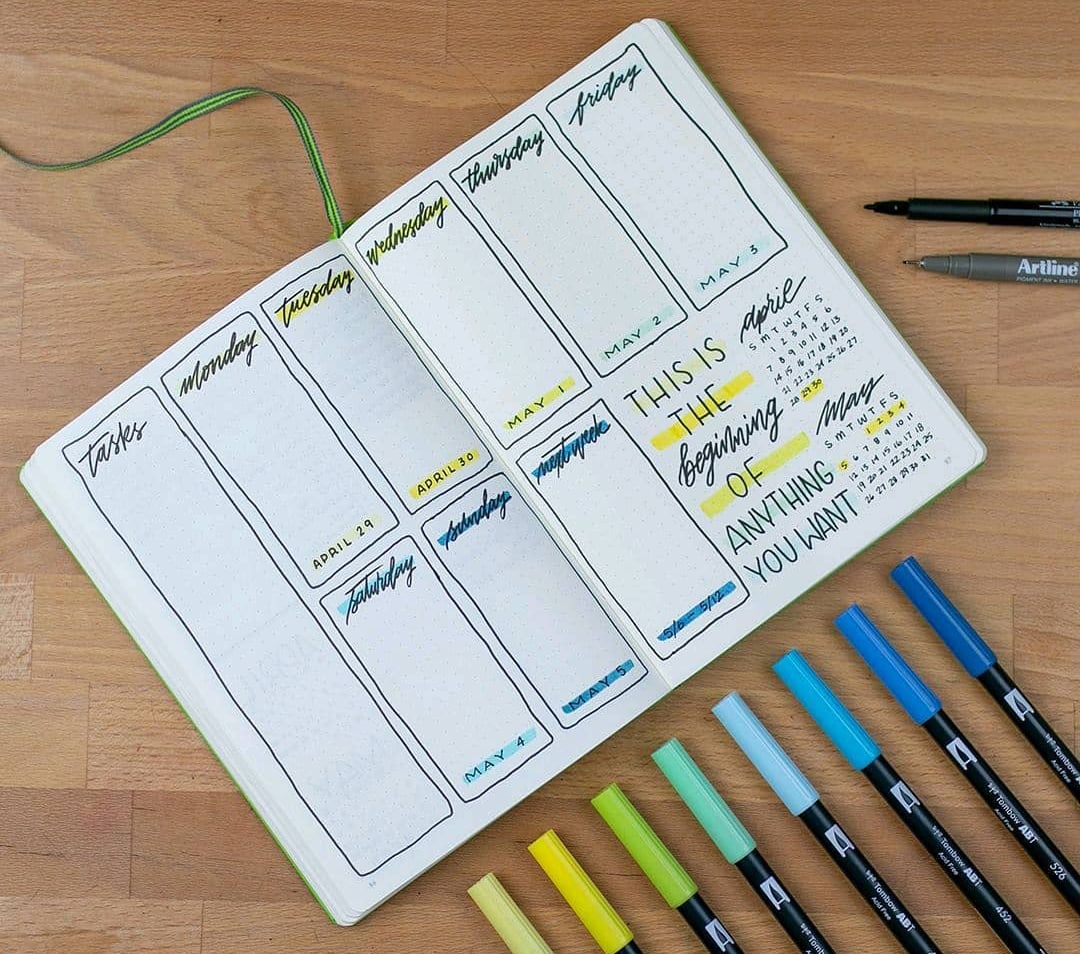 tasks
monday
APRIL 29
tuesday
APRIL 30
saturday
MAY 4
sunday
MAY 5
wednesday
MAY 1
thursday
MAY 2
friday
MAY 3
next week
5/6 - 5/12
THIS IS
THE
beginning
OF
ANYTHING
YOU WANT
april
S M T W T F S
1 2 3 4 5 6
7 8 9 10 11 12 13
14 15 16 17 18 19 20
21 22 23 24 25 26 27
28 29 30
May
S M T W T F S
1 2 3 4
5 6 7 8 9 10 11
12 13 14 15 16 17 18
19 20 21 22 23 24 25
26 27 28 29 30 31
Artline
PIGMENT INK
Tombow ABT
Acid Free
Tombow ABT
Acid Free
452
Tombow ABT
Acid Free
526
Tombow
Acid Free
Tombow